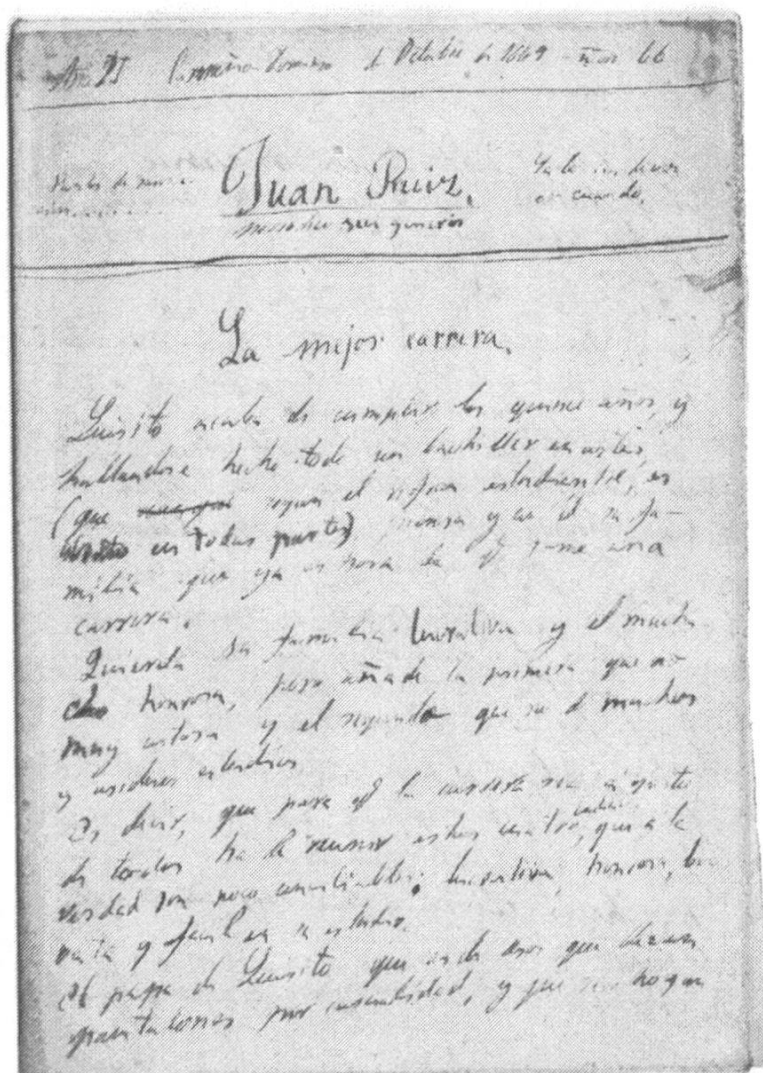 Año II Primera de Octubre de 1869 Núm 66
Juan Ruiz.
sui generis
La mejor carrera.
Luisito acaba de cumplir los quince años, y
hallandose hecho todo un bachiller en artes,
(que segun el refran estudiantil, es
en todas partes) piensa y con él su fa-
milia que ya es hora de q tome una
carrera.
Quierela su familia lucrativa y el mucha-
cho honrosa, pero añade la primera que no
muy costosa y el segundo que no d muchos
y asiduos estudios
Es decir, que para q la carrera sea á gusto
de todos ha de reunir estas cuatro, que a la
verdad son poco conciliables: lucrativa, honrosa, ba
rata y facil en su estudio.
El papa de Luisito que es de esos que llevan
pantalones por casualidad, y que hogar